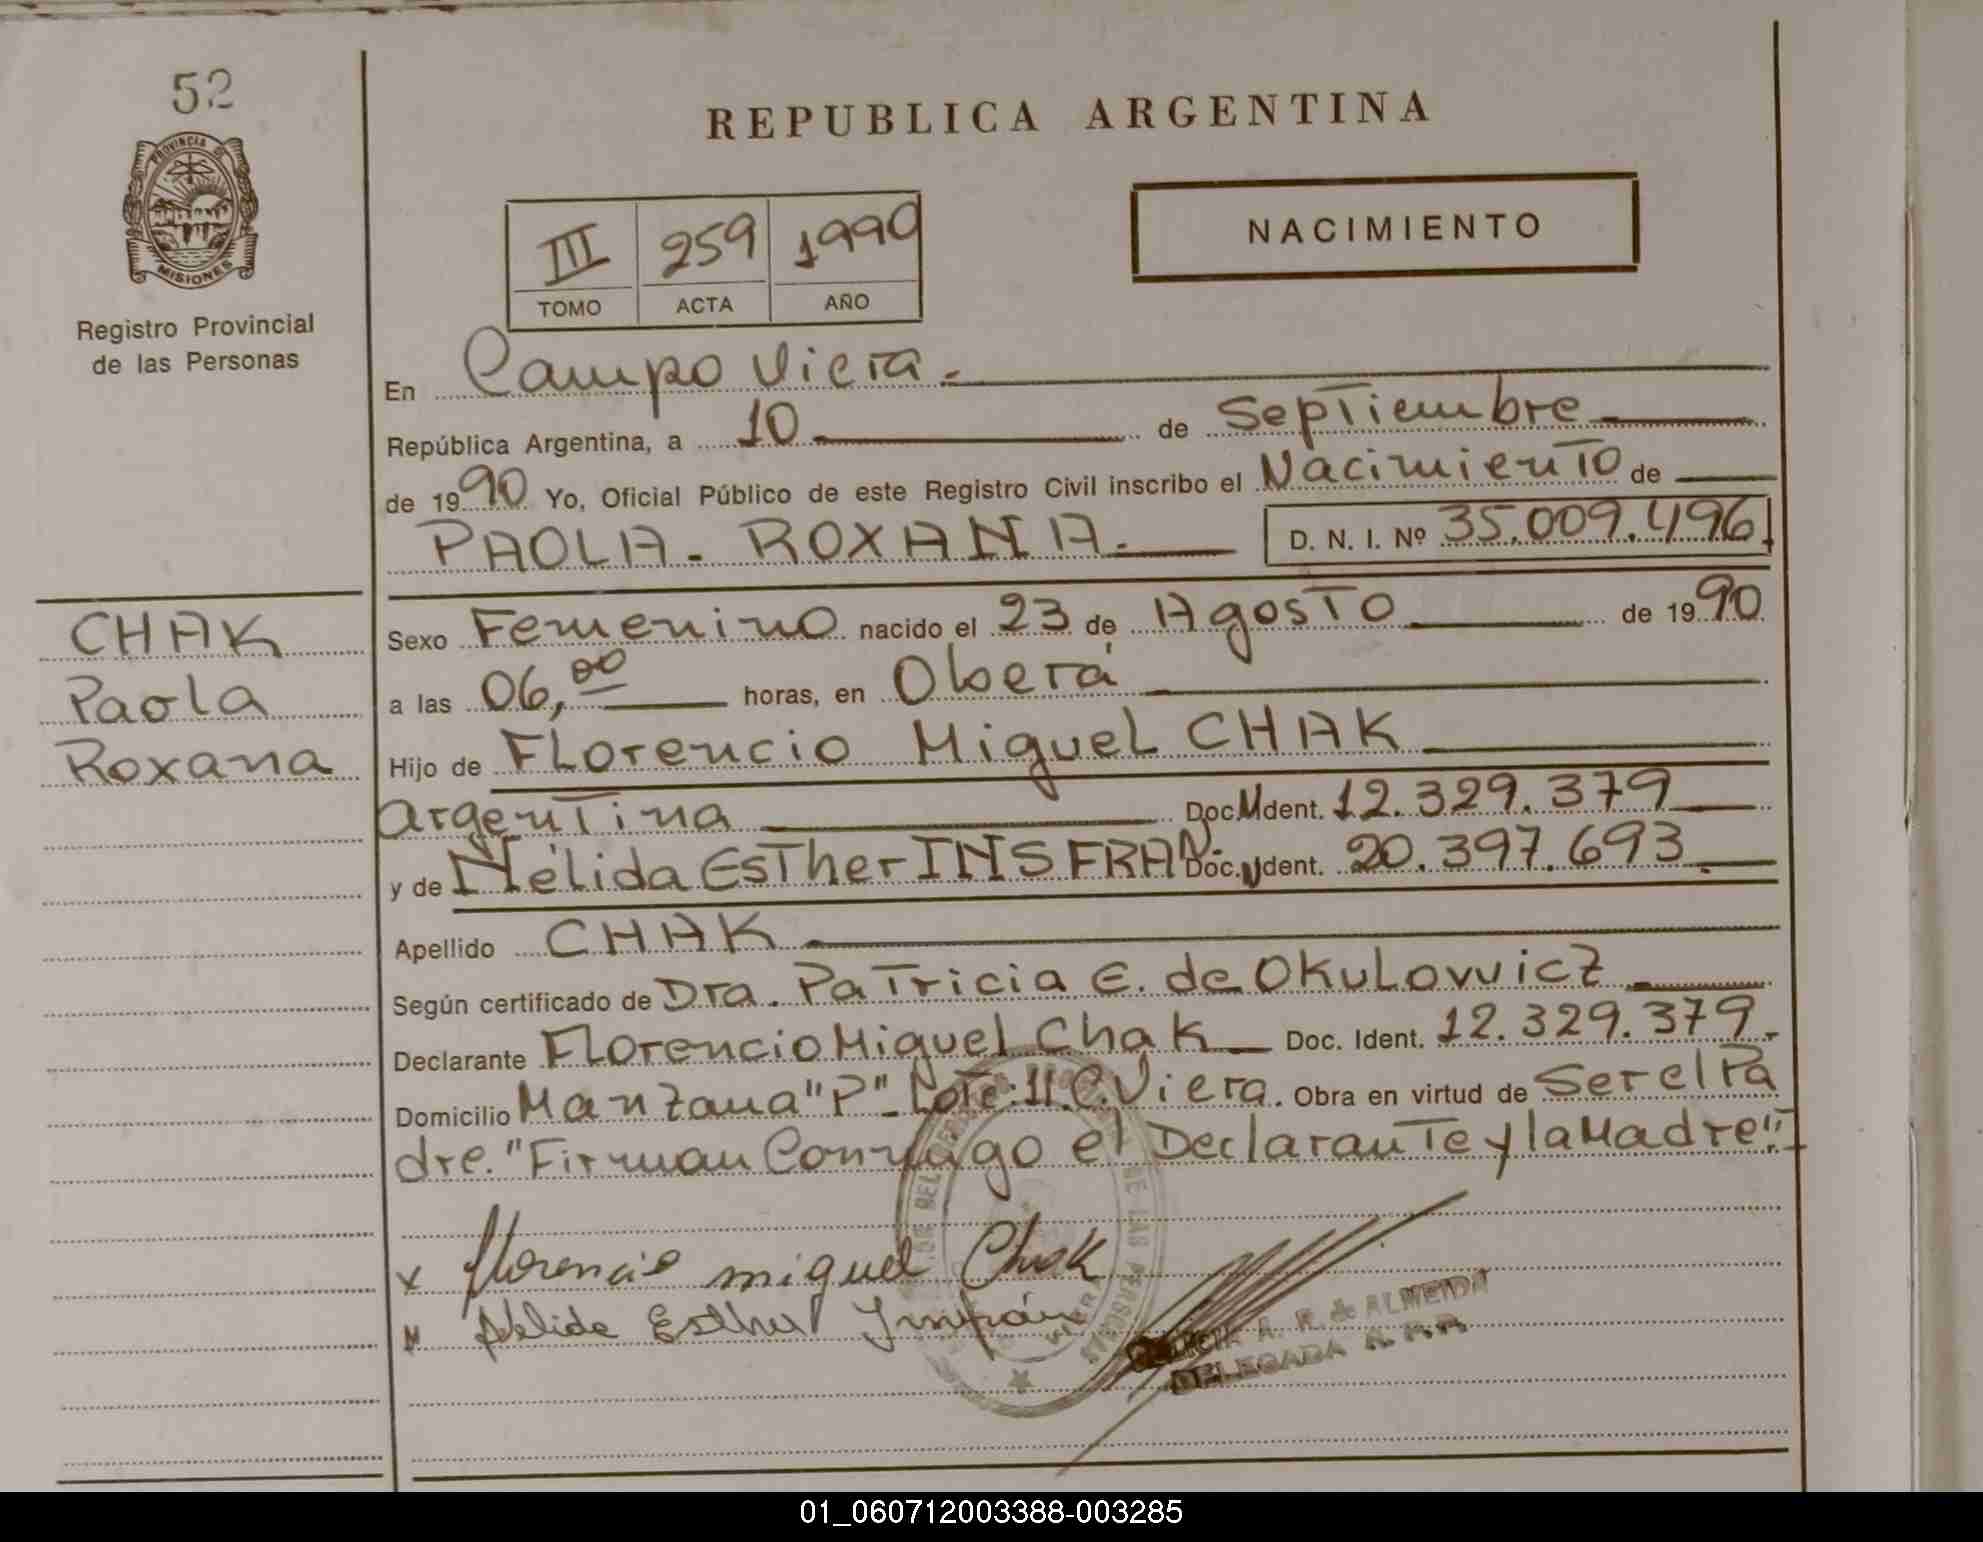 52
REPUBLICA ARGENTINA
PROVINCIA DE
MISIONES
Registro Provincial
de las Personas
III 259 1990
TOMO ACTA AÑO
NACIMIENTO
En Campo Viera.
República Argentina, a 10 de Septiembre
de 1990 Yo, Oficial Público de este Registro Civil inscribo el Nacimiento de
PAOLA - ROXANA. D. N. I. Nº 35.009.496
CHAK
Paola
Roxana
Sexo Femenino nacido el 23 de Agosto de 1990
a las 06,00 horas, en Oberá
Hijo de Florencio Miguel CHAK
argentina Doc. Ident. 12.329.379
y de Nélida Esther INSFRAN. Doc. Ident. 20.397.693
Apellido CHAK
Según certificado de Dra. Patricia E. de Okulovvicz
Declarante Florencio Miguel Chak Doc. Ident. 12.329.379.
Domicilio Manzana "P" - Lote: 11 C. Viera. Obra en virtud de Ser el Pa
dre. "Firman Conmigo el Declarante y la Madre".
x florencio miguel Chak
Nelida Esther Insfrán
A. R. de ALMEIDA
DELEGADA
DE LAS PERSONAS
VIERA
01_060712003388-003285